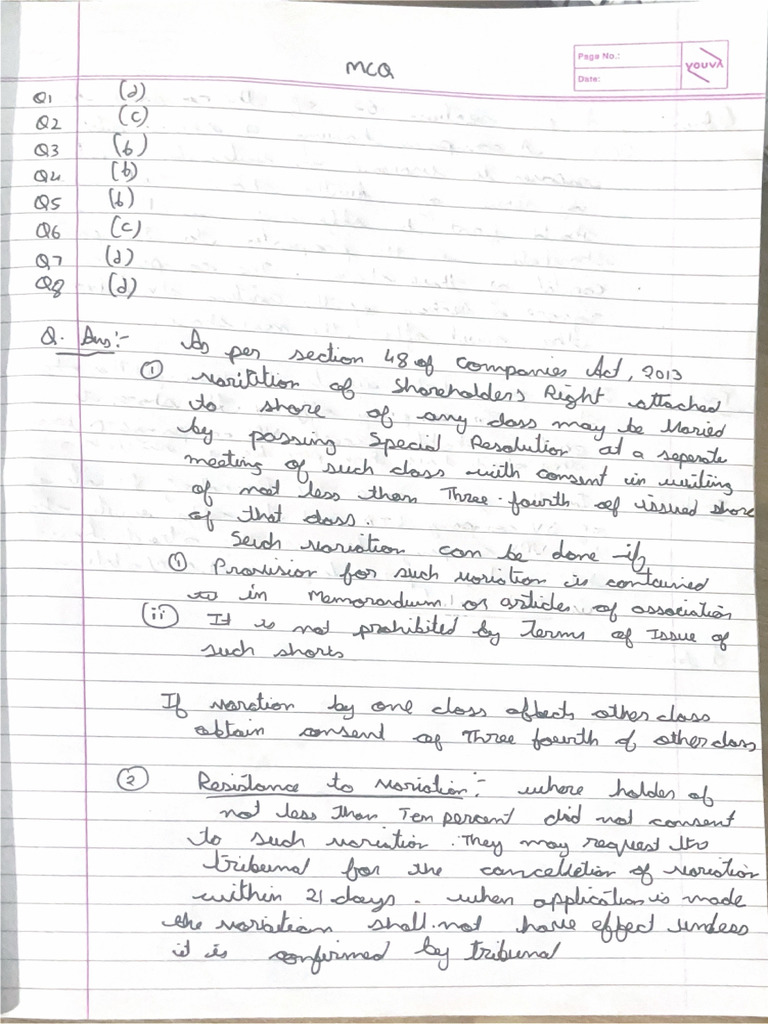 MCQ
Page No.:
Date:
YOUVA
Q1 (d)
Q2 (c)
Q3 (b)
Q4 (b)
Q5 (b)
Q6 (c)
Q7 (d)
Q8 (d)
Q. Ans:- As per section 48 of Companies Act, 2013
① varitition of Shareholders Right attached
to share of any class may be varied
by passing Special Resolution at a seperate
meeting of such class with consent in writing
of not less than Three-fourth of issued share
of that class.
Such variation can be done if
(i) Provision for such variation is contained
in Memorandum or articles of association
(ii) It is not prohibited by Terms of Issue of
such shares
If varation by one class affects other class
obtain consent of Three fourth of other class
② Resistance to variation:- where holder of
not less than Ten percent did not consent
to such variation. They may request to
tribunal for the cancelletion of variation
within 21 days. when application is made
the variation shall not have effect unless
it is confirmed by tribunal